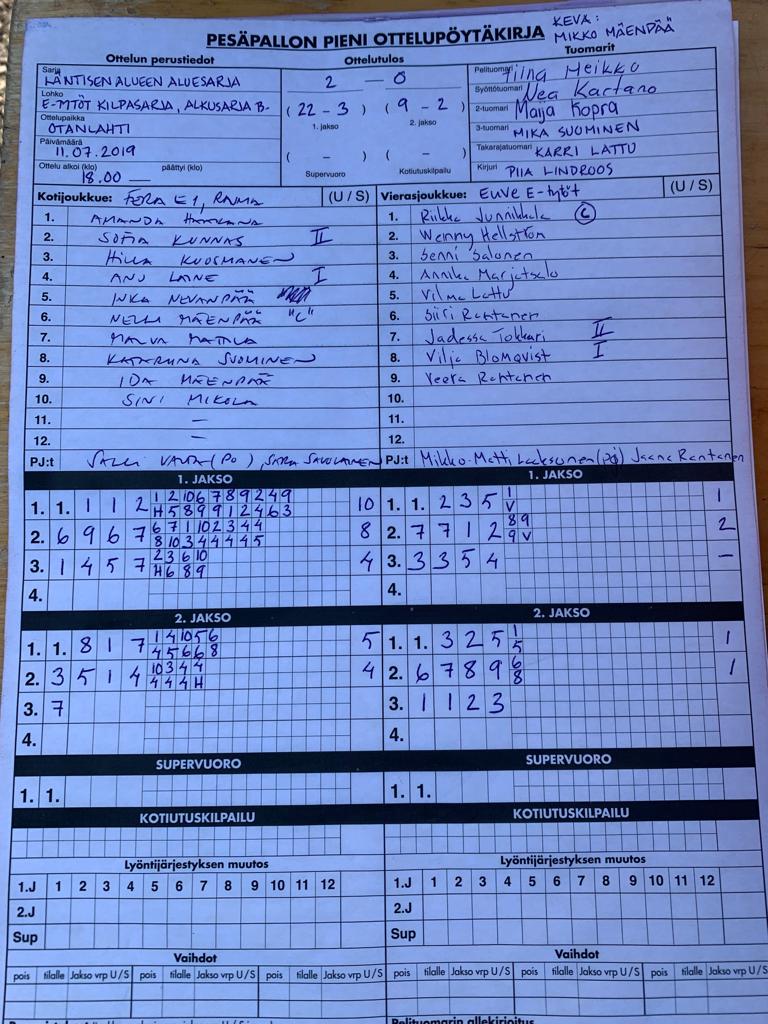 KEVA:
PESÄPALLON PIENI OTTELUPÖYTÄKIRJA MIKKO MÄENPÄÄ
Ottelun perustiedot Ottelutulos Tuomarit
Sarja LÄNTISEN ALUEEN ALUESARJA 2 – 0 Pelituomari Tiina Heikko
Lohko E-TYTÖT KILPASARJA, ALKUSARJA B- (22 - 3) (9 - 2) Syöttötuomari Nea Kartano
1. jakso 2. jakso
Ottelupaikka OTANLAHTI 2-tuomari Maija Kopra
Päivämäärä 11.07.2019 3-tuomari MIKA SUOMINEN
( - ) ( - ) Takarajatuomari KARRI LATTU
Ottelu alkoi (klo) 18.00 päättyi (klo) Supervuoro Kotiutuskilpailu Kirjuri PIIA LINDROOS
Kotijoukkue: FERA E1, RAUMA (U / S) Vierasjoukkue: EUVE E-tytöt (U / S)
1. AMANDA 1. Riikka Junnikkala C
2. SOFIA KUNNAS II 2. Wenny Hellström
3. HILLA KUOSMANEN 3. Senni Salonen
4. ANU LAINE I 4. Annika Marjatsalo
5. INKA NEVANPÄÄ 5. Vilma Lattu
6. NELLA MÄENPÄÄ "C" 6. Siiri Rantanen
7. MALVA MATTILA 7. Jadessa Tokkari II
8. KATARIINA SUOMINEN 8. Vilja Blomqvist I
9. IDA MÄENPÄÄ 9. Veera Rantanen
10. SINI MIKOLA 10.
11. – 11.
12. – 12.
PJ:t SALLI (PO), SARA SAVOLAINEN PJ:t Mikko-Matti Laaksonen (pj) Jaana Rantanen
1. JAKSO 1. JAKSO
1. 1. 1 1 2 1 2 10 6 7 8 9 2 4 9 10 1. 1. 2 3 5 1 1
H 5 8 9 9 1 2 4 6 3 V
2. 6 9 6 7 6 7 1 10 2 3 4 4 8 2. 7 7 1 2 8 9 2
8 10 3 4 4 4 4 5 9 V
3. 1 4 5 7 2 3 6 10 4 3. 3 3 5 4 –
H 6 8 9
4. 4.
2. JAKSO 2. JAKSO
1. 1. 8 1 7 1 4 10 5 6 5 1. 1. 3 2 5 1 1
4 5 6 6 8 5
2. 3 5 1 4 10 3 4 4 4 2. 6 7 8 9 6 1
4 4 4 H 8
3. 7 3. 1 1 2 3
4. 4.
SUPERVUORO SUPERVUORO
1. 1. 1. 1.
KOTIUTUSKILPAILU KOTIUTUSKILPAILU
Lyöntijärjestyksen muutos Lyöntijärjestyksen muutos
1.J 1 2 3 4 5 6 7 8 9 10 11 12 1.J 1 2 3 4 5 6 7 8 9 10 11 12
2.J 2.J
Sup Sup
Vaihdot Vaihdot
pois tilalle Jakso vrp U/S pois tilalle Jakso vrp U/S pois tilalle Jakso vrp U/S pois tilalle Jakso vrp U/S pois tilalle Jakso vrp U/S pois tilalle Jakso vrp U/S
Pelituomarin allekirjoitus